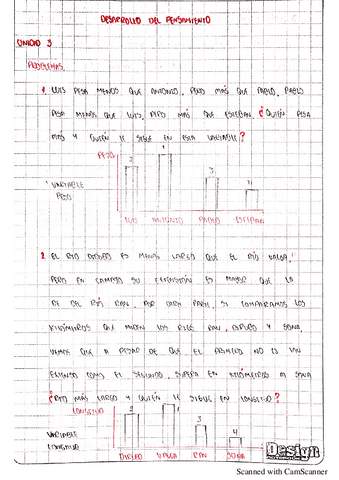 DESARROLLO DEL PENSAMIENTO
UNIDAD 3
PROBLEMAS
1. LUIS PESA MENOS QUE ANTONIO, PERO MÁS QUE PABLO, PABLO
PESA MENOS QUE LUIS, PERO MÁS QUE ESTEBAN. ¿QUIÉN PESA
MÁS Y QUIÉN LE SIGUE EN ESTA VARIABLE?
PESO
2 1 3 4
VARIABLE
PESO
LUIS ANTONIO PABLO ESTEBAN
2 EL RÍO DIRUEO ES MENOS LARGO QUE EL RÍO VALGA,
PERO EN CAMBIO SU EXTENSIÓN ES MAYOR QUE LA
DE DEL RÍO RAN. POR OTRA PARTE, SI COMPARAMOS LOS
KILÓMETROS QUE MIDEN LOS RÍOS RAN, DIRUEO Y SONA,
VEMOS QUE A PESAR DE QUE EL PRIMERO NO ES TAN
EXTENSO COMO EL SEGUNDO, SUPERA EN KILÓMETROS A SONA
¿RÍO MÁS LARGO Y QUIÉN LE SIGUE EN LONGITUD?
LONGITUD
3 4
VARIABLE
LONGITUD
VALGA RAN SONA
Design
Scanned with CamScanner